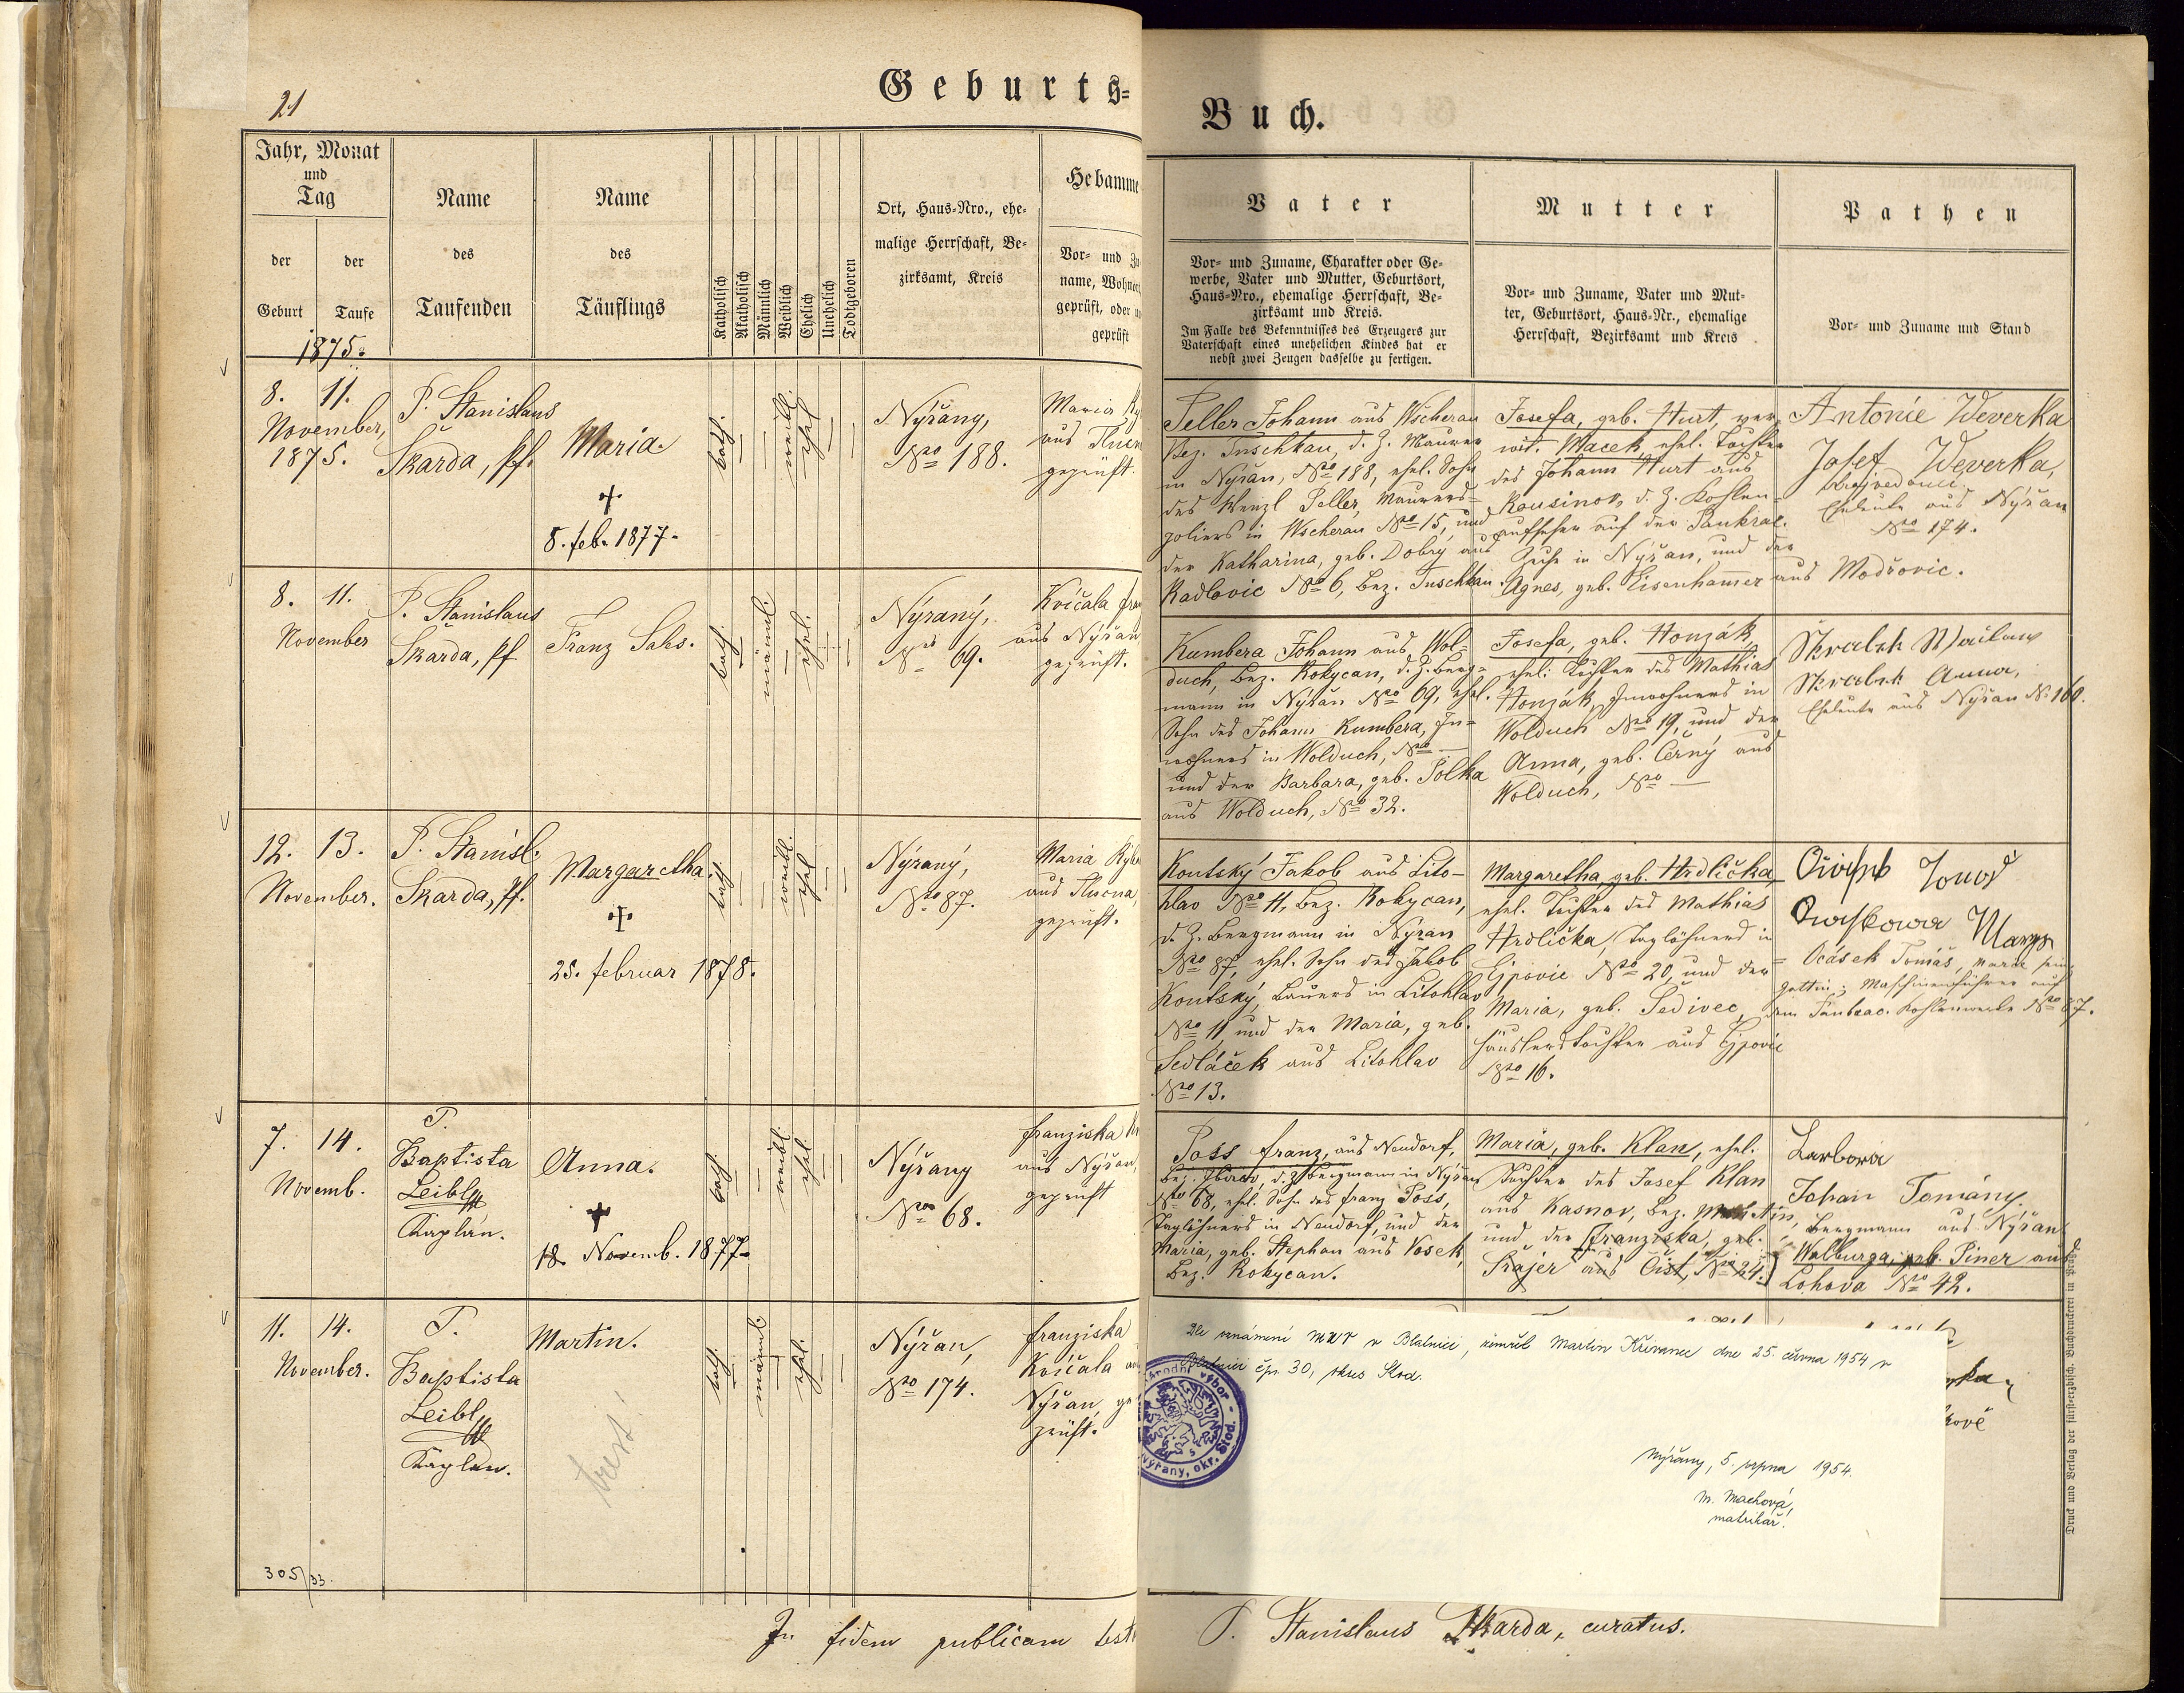 21
Geburts=
Buch.
Jahr, Monat
und
Tag
der
Geburt
der
Taufe
1875.
Name
des
Taufenden
Name
des
Täuflings
Katholisch
Akatholisch
Männlich
Weiblich
Ehelich
Unehelich
Todtgeboren
Ort, Haus=Nro., ehe=
malige Herrschaft, Be=
zirksamt, Kreis
Hebamme
Vor= und Zu
name, Wohnort
geprüft, oder
geprüft
Vater
Vor= und Zuname, Charakter oder Ge=
werbe, Vater und Mutter, Geburtsort,
Haus=Nro., ehemalige Herrschaft, Be=
zirksamt und Kreis.
Im Falle des Bekenntnisses des Erzeugers zur
Vaterschaft eines unehelichen Kindes hat er
nebst zwei Zeugen dasselbe zu fertigen.
Mutter
Vor= und Zuname, Vater und Mut=
ter, Geburtsort, Haus=Nr., ehemalige
Herrschaft, Bezirksamt und Kreis
Pathen
Vor= und Zuname und Stand
8. 11.
November,
1875.
P. Stanislaus
Skarda, Pf.
Maria.
8. feb. 1877.
kath.
weibl.
ehel.
Nýřany,
Nro 188.
Maria
aus
geprüft.
Peller Johann aus Wscheran
Bez. Tuschkau, d. Z. Maurer
in Nýřan, Nro 188, ehel. Sohn
des Wenzl Peller, Maurers=
poliers in Wscheran Nro 15, und
der Katharina, geb. Dobrý aus
Radlovic Nro 6, Bez. Tuschkau.
Josefa, geb. Hurt, ver=
wit. Macek, ehel. Tochter
des Johann Hurt aus
Rousinov, d. Z. Kohlen=
aufseher auf der Pankraz.
Zeche in Nýřan, und der
Agnes, geb. Eisenhammer aus Modřovic.
Antonie Weverka
Josef Weverka,
Eheleute aus Nýřan
Nro 174.
8. 11.
November
P. Stanislaus
Skarda, Pf
Franz Sales.
kath.
männl.
ehel.
Nýřaný,
Nro 69.
Kvíčala
aus Nýřan,
geprüft.
Kumbera Johann aus Wol=
duch, Bez. Rokycan, d. Z. Berg=
mann in Nýřan Nro 69, ehel.
Sohn des Johann Kumbera, In=
wohners in Wolduch, Nro —
und der Barbara, geb. Polka
aus Wolduch, Nro 32.
Josefa, geb. Honzák,
ehel. Tochter des Mathias
Honzák, Inwohners in
Wolduch Nro 19, und der
Anna, geb. Černý aus
Wolduch, Nro —
Anna,
Eheleute aus Nýřan N. 160.
12. 13.
November.
P. Stanisl.
Skarda, Pf.
Margaretha.
25. februar 1878.
kath.
weibl.
ehel.
Nýřaný,
Nro 87.
Maria
aus
geprüft.
Koutský Jakob aus Lito=
hlav Nro 11, Bez. Rokycan,
d. Z. Bergmann in Nýřan
Nro 87, ehel. Sohn des Jakob
Koutský, Bauers in Litohlav
Nro 11 und der Maria, geb.
Sedláček aus Litohlav
Nro 13.
Margaretha, geb. Hrdlička,
ehel. Tochter des Mathias
Hrdlička, Taglöhners in
Ejpovic Nro 20, und der
Maria, geb. Šedivec,
Häuslerstochter aus Ejpovic
Nro 16.
Ocásek Tomáš, Marie sein
Gattin; Maschinenführer auf
dem Pankrac. Kohlenwerke Nro 87.
7. 14.
Novemb.
P.
Baptista
Leibl
Kaplan.
Anna.
18. Novemb. 1877.
kath.
weibl.
ehel.
Nýřany
Nro 68.
franziska
aus Nýřan,
geprüft
Poss franz, aus Neudorf,
Bez. Zbirow, d. Z. Bergmann in Nýřan
Nro 68, ehel. Sohn des franz Poss,
Taglöhners in Neudorf, und der
Maria, geb. Stephan aus Vosek,
Bez. Rokycan.
Maria, geb. Klan, ehel.
Tochter des Josef Klan
aus Kasnov, Bez.
und der Franziska, geb.
Šrajer aus Čist, Nro 24.
Barbora
Johan Tomány,
Bergmann aus Nýřan
Walburga, geb. Piner aus
Lohova Nro 42.
11. 14.
November.
P.
Baptista
Leibl
Kaplan.
Martin.
kath.
männl.
ehel.
Nýřan,
Nro 174.
franziska
Kvíčala
Nýřan, ge
prüft.
Dle oznámení MNV v Blatnici, zemřel Martin Křivanec dne 25. června 1954 v
Blatnici čp. 30, okres Stod.
Nýřany, 5. srpna 1954.
M. Machová,
matrikář.
305/33.
In fidem publicam
P. Stanislaus Skarda, curatus.
Druck und Verlag der fürst=erzbisch. Buchdruckerei in Prag.